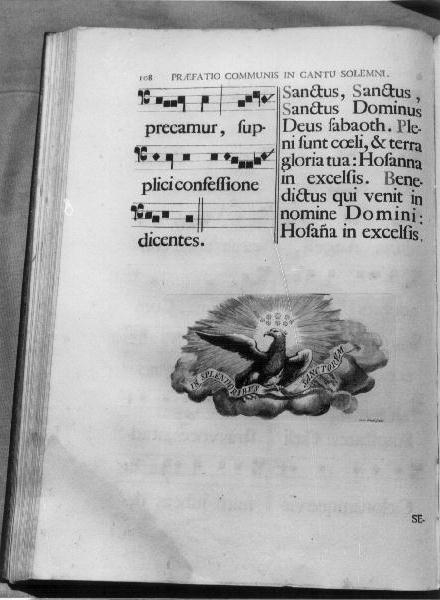 108 PRÆFATIO COMMUNIS IN CANTU SOLEMNI.
precamur, sup-
plici confessione
dicentes.
Sanctus, Sanctus,
Sanctus Dominus
Deus sabaoth. Ple-
ni sunt cœli, & terra
gloria tua: Hosanna
in excelsis. Bene-
dictus qui venit in
nomine Domini:
Hosaña in excelsis.
IN SPLENDORIBUS SANCTORUM
SE-